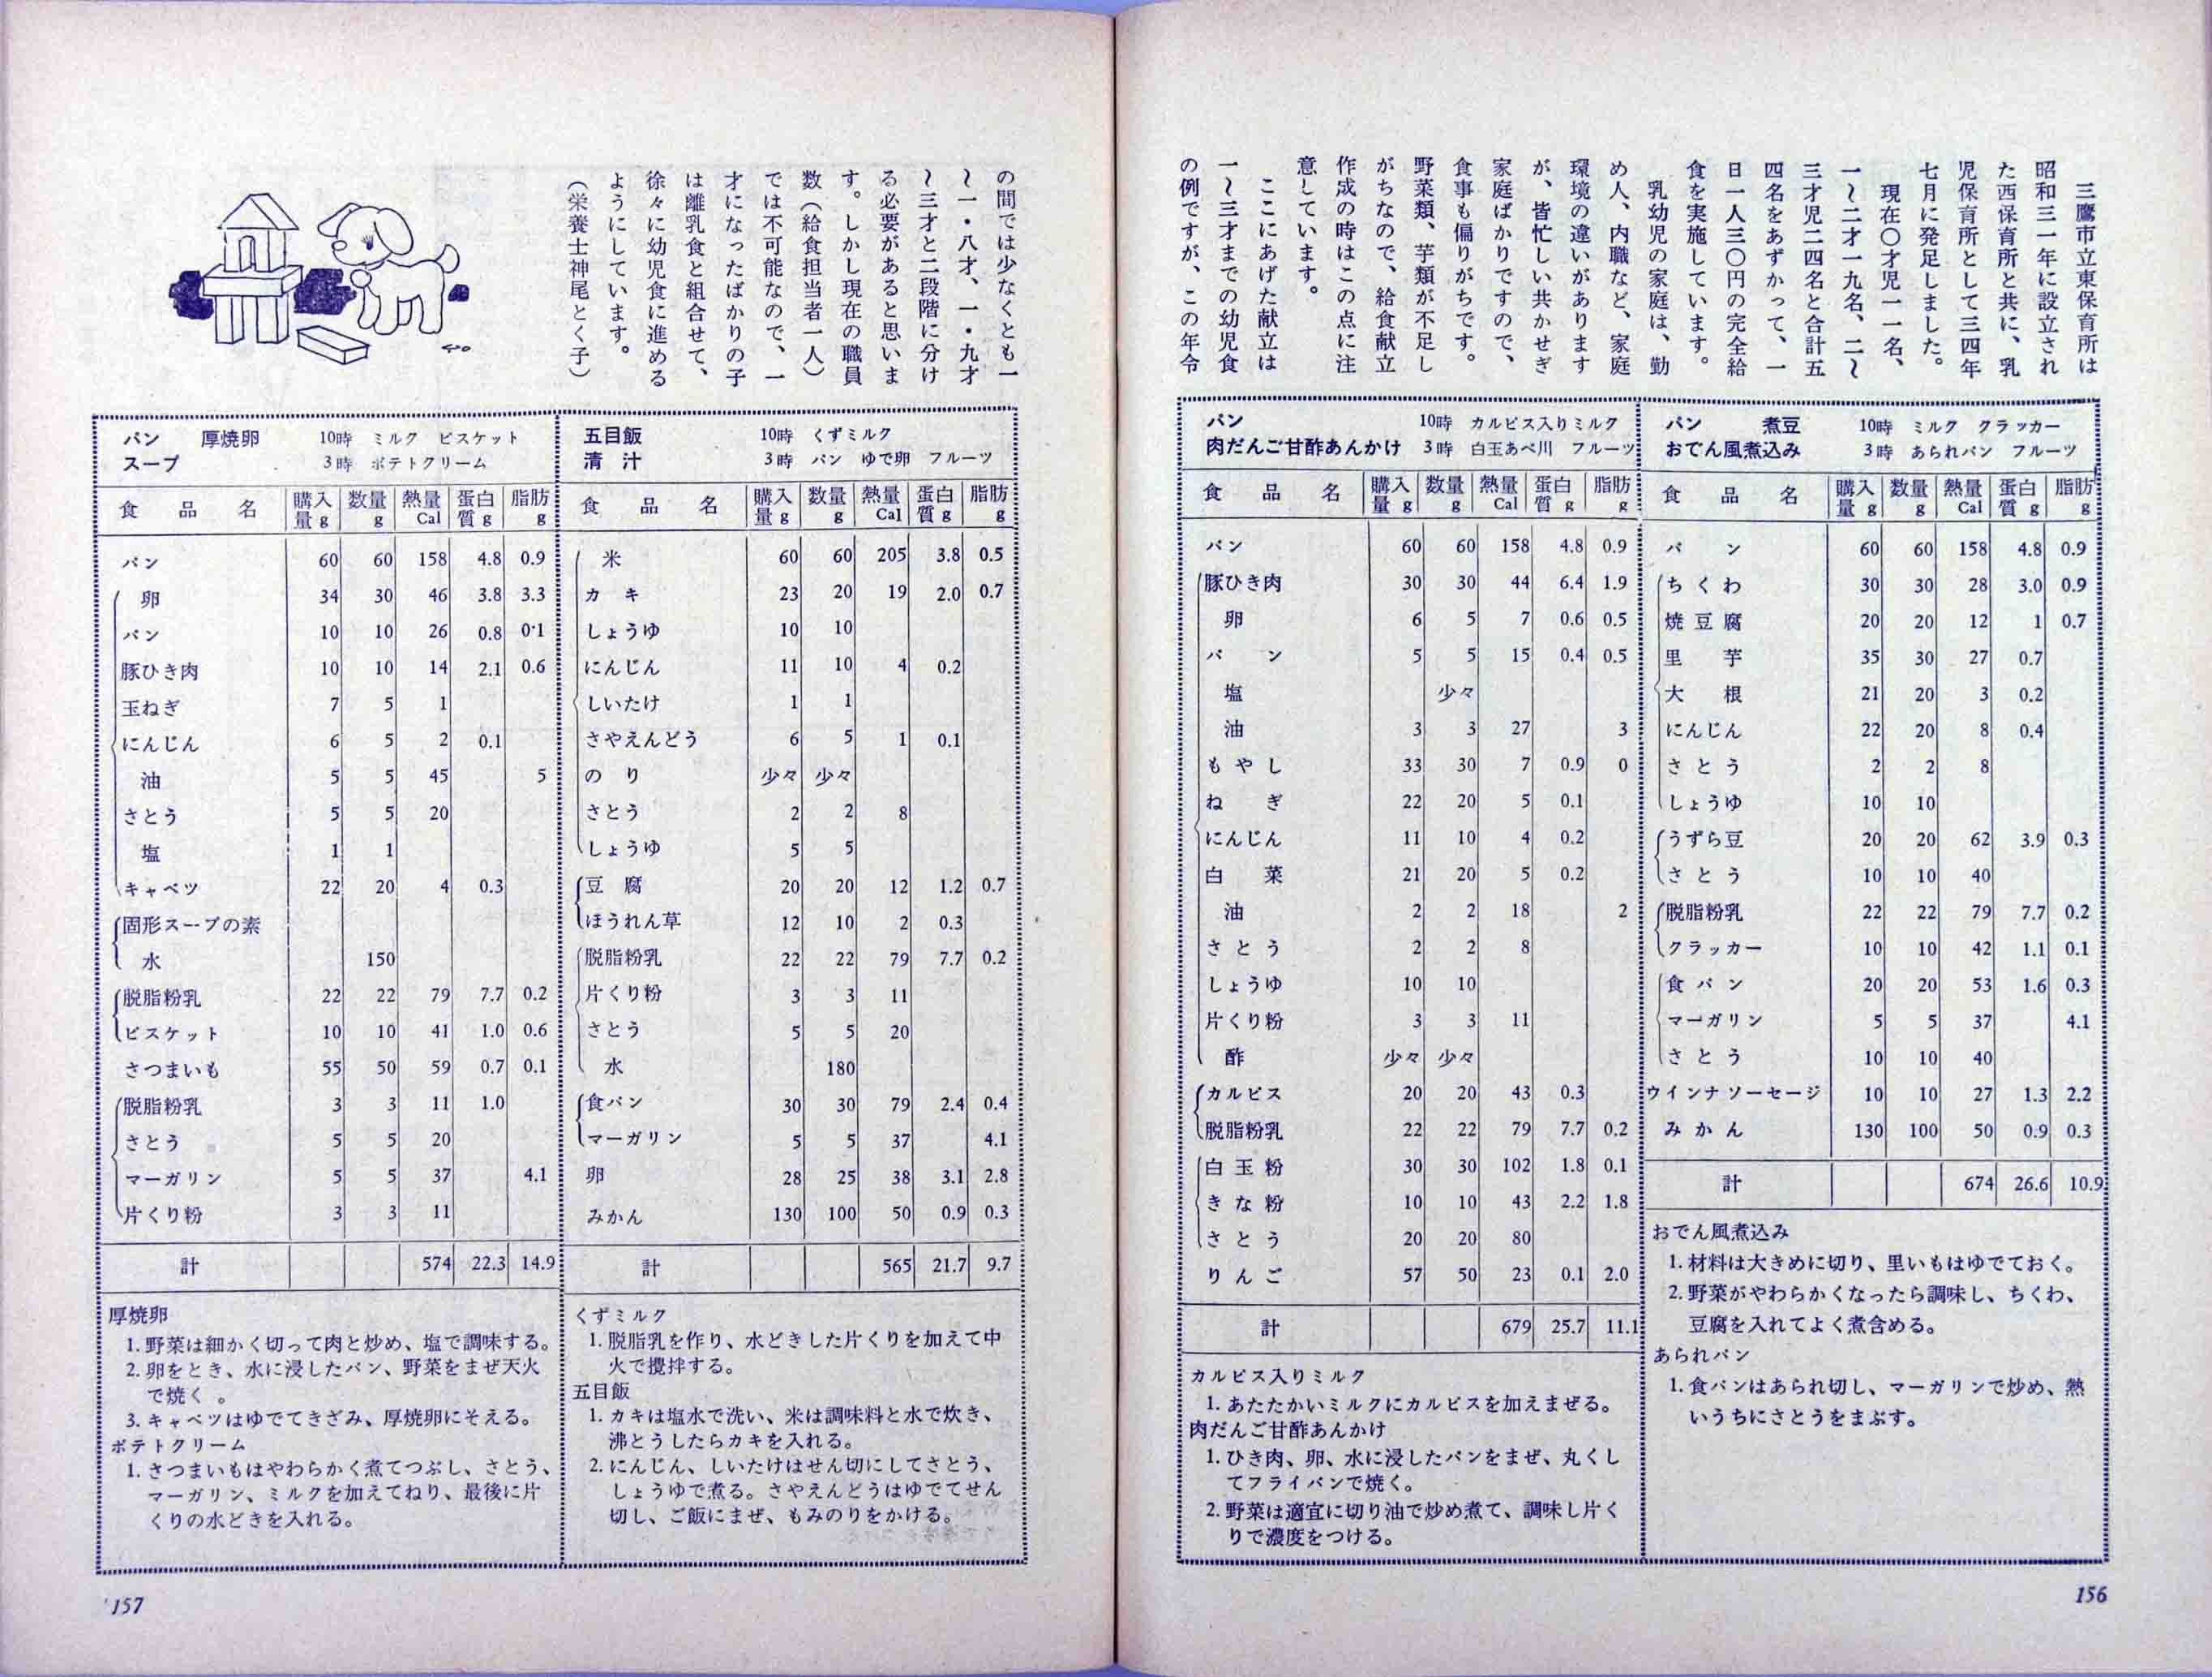 三鷹市立東保育所は
昭和三一年に設立され
た西保育所と共に、乳
児保育所として三四年
七月に発足しました。
現在〇才児一一名、
一〜二才一九名、二〜
三才児二四名と合計五
四名をあずかって、一
日一人三〇円の完全給
食を実施しています。
乳幼児の家庭は、勤
め人、内職など、家庭
環境の違いがあります
が、皆忙しい共かせぎ
家庭ばかりですので、
食事も偏りがちです。
野菜類、芋類が不足し
がちなので、給食献立
作成の時はこの点に注
意しています。
ここにあげた献立は
一〜三才までの幼児食
の例ですが、この年令
パン 煮豆 10時 ミルク クラッカー
おでん風煮込み 3時 あられパン フルーツ
食品名 購入量g 数量g 熱量Cal 蛋白質g 脂肪g
パン 60 60 158 4.8 0.9
ちくわ 30 30 28 3.0 0.9
焼豆腐 20 20 12 1 0.7
里芋 35 30 27 0.7
大根 21 20 3 0.2
にんじん 22 20 8 0.4
さとう 2 2 8
しょうゆ 10 10
うずら豆 20 20 62 3.9 0.3
さとう 10 10 40
脱脂粉乳 22 22 79 7.7 0.2
クラッカー 10 10 42 1.1 0.1
食パン 20 20 53 1.6 0.3
マーガリン 5 5 37 4.1
さとう 10 10 40
ウインナソーセージ 10 10 27 1.3 2.2
みかん 130 100 50 0.9 0.3
計 674 26.6 10.9
おでん風煮込み
1. 材料は大きめに切り、里いもはゆでておく。
2. 野菜がやわらかくなったら調味し、ちくわ、
豆腐を入れてよく煮含める。
あられパン
1. 食パンはあられ切し、マーガリンで炒め、熱
いうちにさとうをまぶす。
パン 10時 カルピス入りミルク
肉だんご甘酢あんかけ 3時 白玉あべ川 フルーツ
食品名 購入量g 数量g 熱量Cal 蛋白質g 脂肪g
パン 60 60 158 4.8 0.9
豚ひき肉 30 30 44 6.4 1.9
卵 6 5 7 0.6 0.5
パン 5 5 15 0.4 0.5
塩 少々
油 3 3 27 3
もやし 33 30 7 0.9 0
ねぎ 22 20 5 0.1
にんじん 11 10 4 0.2
白菜 21 20 5 0.2
油 2 2 18 2
さとう 2 2 8
しょうゆ 10 10
片くり粉 3 3 11
酢 少々 少々
カルピス 20 20 43 0.3
脱脂粉乳 22 22 79 7.7 0.2
白玉粉 30 30 102 1.8 0.1
きな粉 10 10 43 2.2 1.8
さとう 20 20 80
りんご 57 50 23 0.1 2.0
計 679 25.7 11.1
カルピス入りミルク
1. あたたかいミルクにカルピスを加えまぜる。
肉だんご甘酢あんかけ
1. ひき肉、卵、水に浸したパンをまぜ、丸くし
てフライパンで焼く。
2. 野菜は適宜に切り油で炒め煮て、調味し片く
りで濃度をつける。
156
の間では少なくとも一
〜一・八才、一・九才
〜三才と二段階に分け
る必要があると思いま
す。しかし現在の職員
数（給食担当者一人）
では不可能なので、一
才になったばかりの子
は離乳食と組合せて、
徐々に幼児食に進める
ようにしています。
（栄養士神尾とく子）
五目飯 10時 くずミルク
清汁 3時 パン ゆで卵 フルーツ
食品名 購入量g 数量g 熱量Cal 蛋白質g 脂肪g
米 60 60 205 3.8 0.5
カキ 23 20 19 2.0 0.7
しょうゆ 10 10
にんじん 11 10 4 0.2
しいたけ 1 1
さやえんどう 6 5 1 0.1
のり 少々 少々
さとう 2 2 8
しょうゆ 5 5
豆腐 20 20 12 1.2 0.7
ほうれん草 12 10 2 0.3
脱脂粉乳 22 22 79 7.7 0.2
片くり粉 3 3 11
さとう 5 5 20
水 180
食パン 30 30 79 2.4 0.4
マーガリン 5 5 37 4.1
卵 28 25 38 3.1 2.8
みかん 130 100 50 0.9 0.3
計 565 21.7 9.7
くずミルク
1. 脱脂乳を作り、水どきした片くりを加えて中
火で攪拌する。
五目飯
1. カキは塩水で洗い、米は調味料と水で炊き、
沸とうしたらカキを入れる。
2. にんじん、しいたけはせん切にしてさとう、
しょうゆで煮る。さやえんどうはゆでてせん
切し、ご飯にまぜ、もみのりをかける。
パン 厚焼卵 10時 ミルク ビスケット
スープ 3時 ポテトクリーム
食品名 購入量g 数量g 熱量Cal 蛋白質g 脂肪g
パン 60 60 158 4.8 0.9
卵 34 30 46 3.8 3.3
パン 10 10 26 0.8 0·1
豚ひき肉 10 10 14 2.1 0.6
玉ねぎ 7 5 1
にんじん 6 5 2 0.1
油 5 5 45 5
さとう 5 5 20
塩 1 1
キャベツ 22 20 4 0.3
固形スープの素
水 150
脱脂粉乳 22 22 79 7.7 0.2
ビスケット 10 10 41 1.0 0.6
さつまいも 55 50 59 0.7 0.1
脱脂粉乳 3 3 11 1.0
さとう 5 5 20
マーガリン 5 5 37 4.1
片くり粉 3 3 11
計 574 22.3 14.9
厚焼卵
1. 野菜は細かく切って肉と炒め、塩で調味する。
2. 卵をとき、水に浸したパン、野菜をまぜ天火
で焼く。
3. キャベツはゆでてきざみ、厚焼卵にそえる。
ポテトクリーム
1. さつまいもはやわらかく煮てつぶし、さとう、
マーガリン、ミルクを加えてねり、最後に片
くりの水どきを入れる。
157